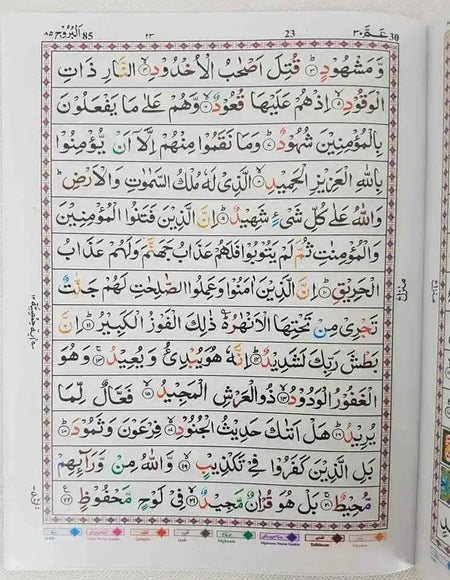 البروج ٨٥ 85 23 23 30 عم ٣٠
وَّمَشْهُوْدٍ ؕ﴿۳﴾ قُتِلَ اَصْحٰبُ الْاُخْدُوْدِ ۙ﴿۴﴾ النَّارِ ذَاتِ
الْوَقُوْدِ ۙ﴿۵﴾ اِذْ هُمْ عَلَيْهَا قُعُوْدٌ ۙ﴿۶﴾ وَّهُمْ عَلٰى مَا يَفْعَلُوْنَ
بِالْمُؤْمِنِيْنَ شُهُوْدٌ ؕ﴿۷﴾ وَمَا نَقَمُوْا مِنْهُمْ اِلَّاۤ اَنْ يُّؤْمِنُوْا
بِاللّٰهِ الْعَزِيْزِ الْحَمِيْدِ ۙ﴿۸﴾ الَّذِيْ لَهٗ مُلْكُ السَّمٰوٰتِ وَالْاَرْضِ ؕ
وَاللّٰهُ عَلٰى كُلِّ شَيْءٍ شَهِيْدٌ ؕ﴿۹﴾ اِنَّ الَّذِيْنَ فَتَنُوا الْمُؤْمِنِيْنَ
وَالْمُؤْمِنٰتِ ثُمَّ لَمْ يَتُوْبُوْا فَلَهُمْ عَذَابُ جَهَنَّمَ وَلَهُمْ عَذَابُ
الْحَرِيْقِ ؕ﴿۱۰﴾ اِنَّ الَّذِيْنَ اٰمَنُوْا وَعَمِلُوا الصّٰلِحٰتِ لَهُمْ جَنّٰتٌ
تَجْرِيْ مِنْ تَحْتِهَا الْاَنْهٰرُ ؕ۬ ذٰلِكَ الْفَوْزُ الْكَبِيْرُ ؕ﴿۱۱﴾ اِنَّ
بَطْشَ رَبِّكَ لَشَدِيْدٌ ؕ﴿۱۲﴾ اِنَّهٗ هُوَ يُبْدِئُ وَيُعِيْدُ ۚ﴿۱۳﴾ وَهُوَ
الْغَفُوْرُ الْوَدُوْدُ ۙ﴿۱۴﴾ ذُو الْعَرْشِ الْمَجِيْدُ ۙ﴿۱۵﴾ فَعَّالٌ لِّمَا
يُرِيْدُ ؕ﴿۱۶﴾ هَلْ اَتٰىكَ حَدِيْثُ الْجُنُوْدِ ۙ﴿۱۷﴾ فِرْعَوْنَ وَثَمُوْدَ ؕ﴿۱۸﴾
بَلِ الَّذِيْنَ كَفَرُوْا فِيْ تَكْذِيْبٍ ۙ﴿۱۹﴾ وَّاللّٰهُ مِنْ وَّرَآئِهِمْ
مُّحِيْطٌ ۚ﴿۲۰﴾ بَلْ هُوَ قُرْاٰنٌ مَّجِيْدٌ ۙ﴿۲۱﴾ فِيْ لَوْحٍ مَّحْفُوْظٍ ؒ﴿۲۲﴾